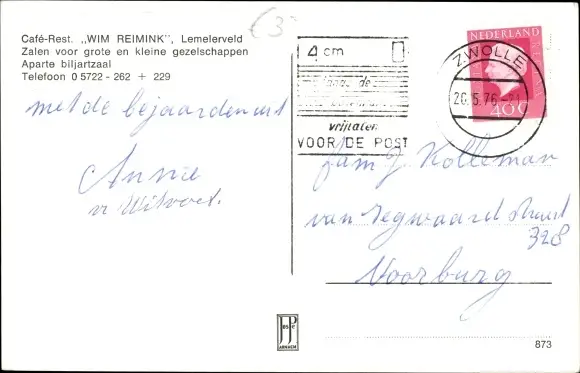 (3
Café-Rest. „WIM REIMINK”, Lemelerveld
Zalen voor grote en kleine gezelschappen
Aparte biljartzaal
Telefoon 0 5722 - 262 + 229
met de bejaarden uit
Annie
4 cm
vrijlaten
VOOR DE POST
NEDERLAND
40c
ZWOLLE
fam J. Kolleman
van Zegwaard straat
328
Voorburg
ARNACH
873